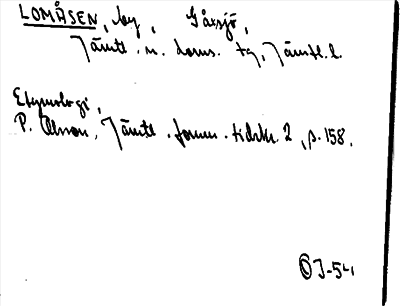 LOMÅSEN, by, Gåxsjö,
Jämtl. n. doms. tg, Jämtl. l.
Etymologi,
P. Olsson, Jämtl. fornm. tidskr. 2, s. 158.
OJ-54